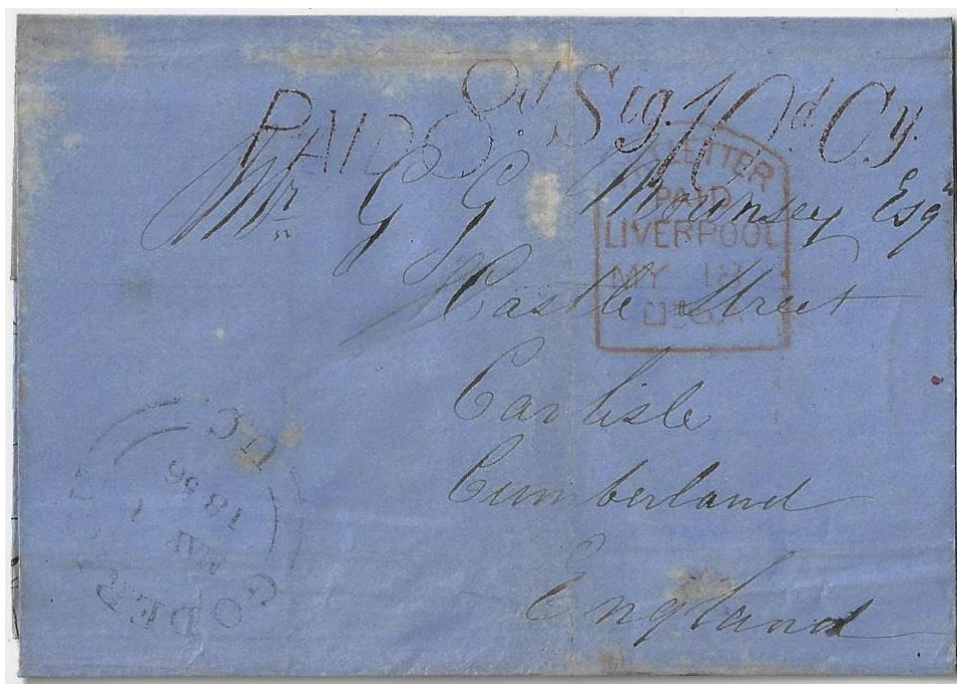 PAID 8d Stg. 10d Cy.
LETTER
PAID
LIVERPOOL
MY 18
U.S.
Mr. G G Mounsey Esqr
Castle Street
Carlisle
Cumberland
England
GODER
U.C
MAY 1
1856